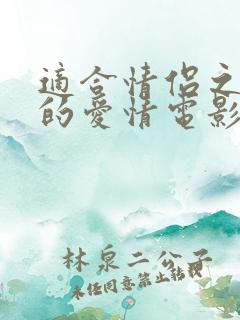 適合情侶之
的愛情電影
林泉二公子
未经同意禁止转载